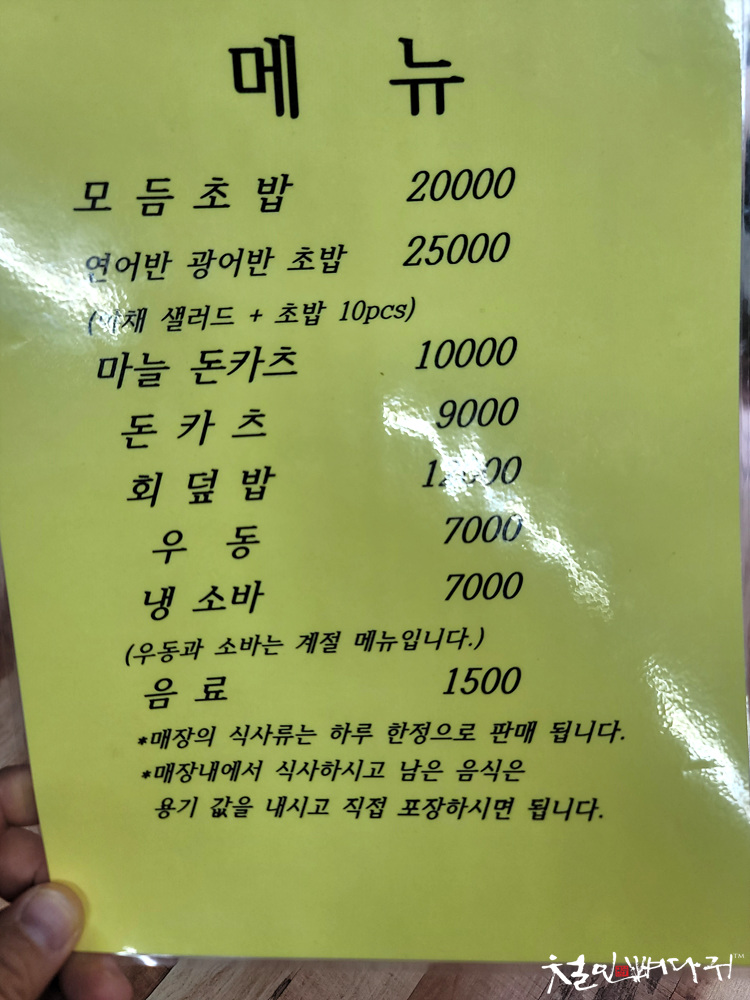 메 뉴
모 듬 초 밥 20000
연어반 광어반 초밥 25000
샐러드 + 초밥 10pcs)
마늘 돈카츠 10000
돈 카 츠 9000
회 덮 밥
우 동 7000
냉 소바 7000
(우동과 소바는 계절 메뉴입니다.)
음 료 1500
*매장의 식사류는 하루 한정으로 판매 됩니다.
*매장내에서 식사하시고 남은 음식은
용기 값을 내시고 직접 포장하시면 됩니다.